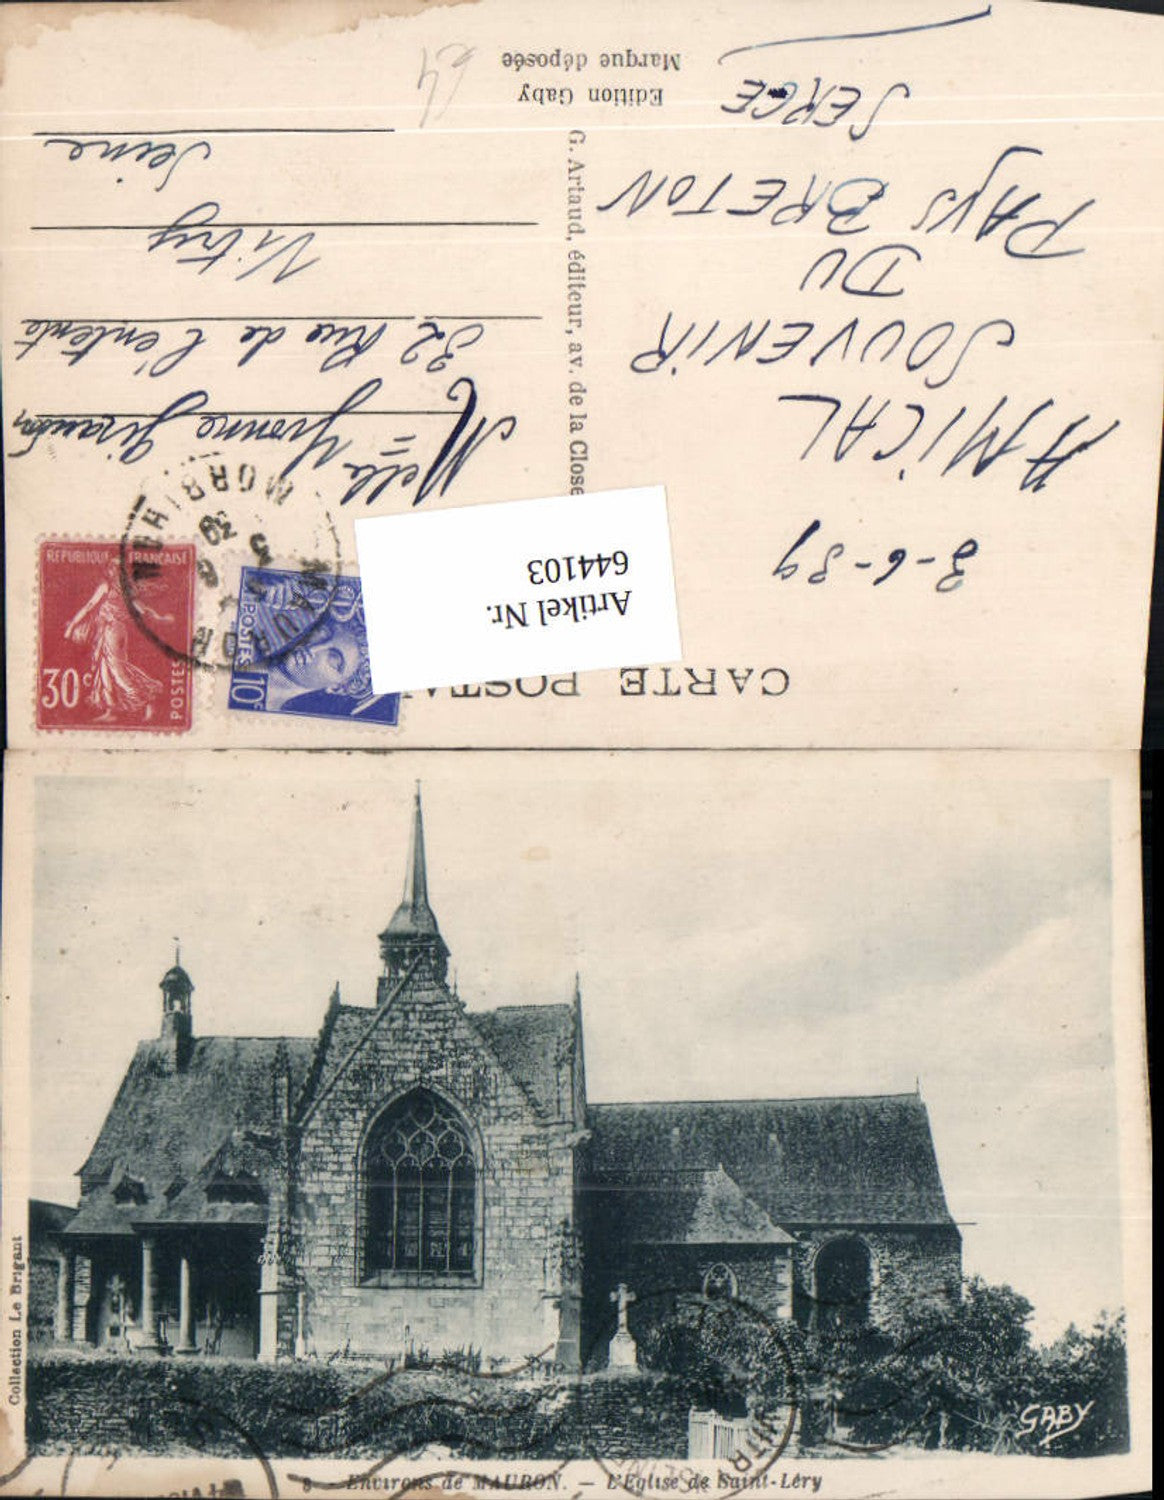 CARTE POSTA
3-6-39
AMICAL
SOUVENIR
DU
PAYS BRETON
SERGE
Artikel Nr.
644103
G. Artaud, éditeur, av. de la Close
Edition Gaby
Marque déposée
64
REPUBLIQUE FRANCAISE
30c
POSTES
10c
POSTES
MAURON
MORBIHAN
5
39
Melle Yvonne Giraudon
32 Rue de l'entente
Vitry
Seine
Collection Le Brigant
GABY
8 - Environs de MAURON. - L'Eglise de Saint-Léry